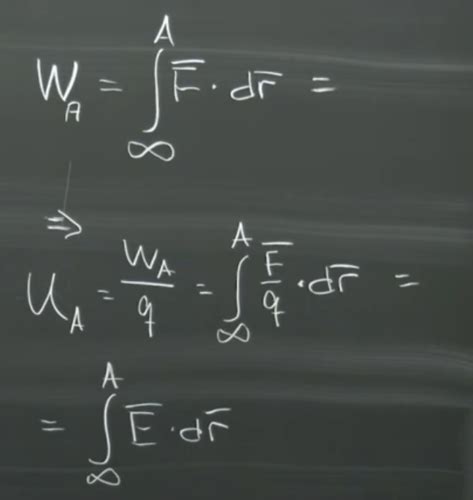 W_A = ∫_∞^A F̅ · dr̅ =
⇒
U_A = W_A/q = ∫_∞^A F̅/q · dr̅ =
= ∫_∞^A E̅ · dr̅